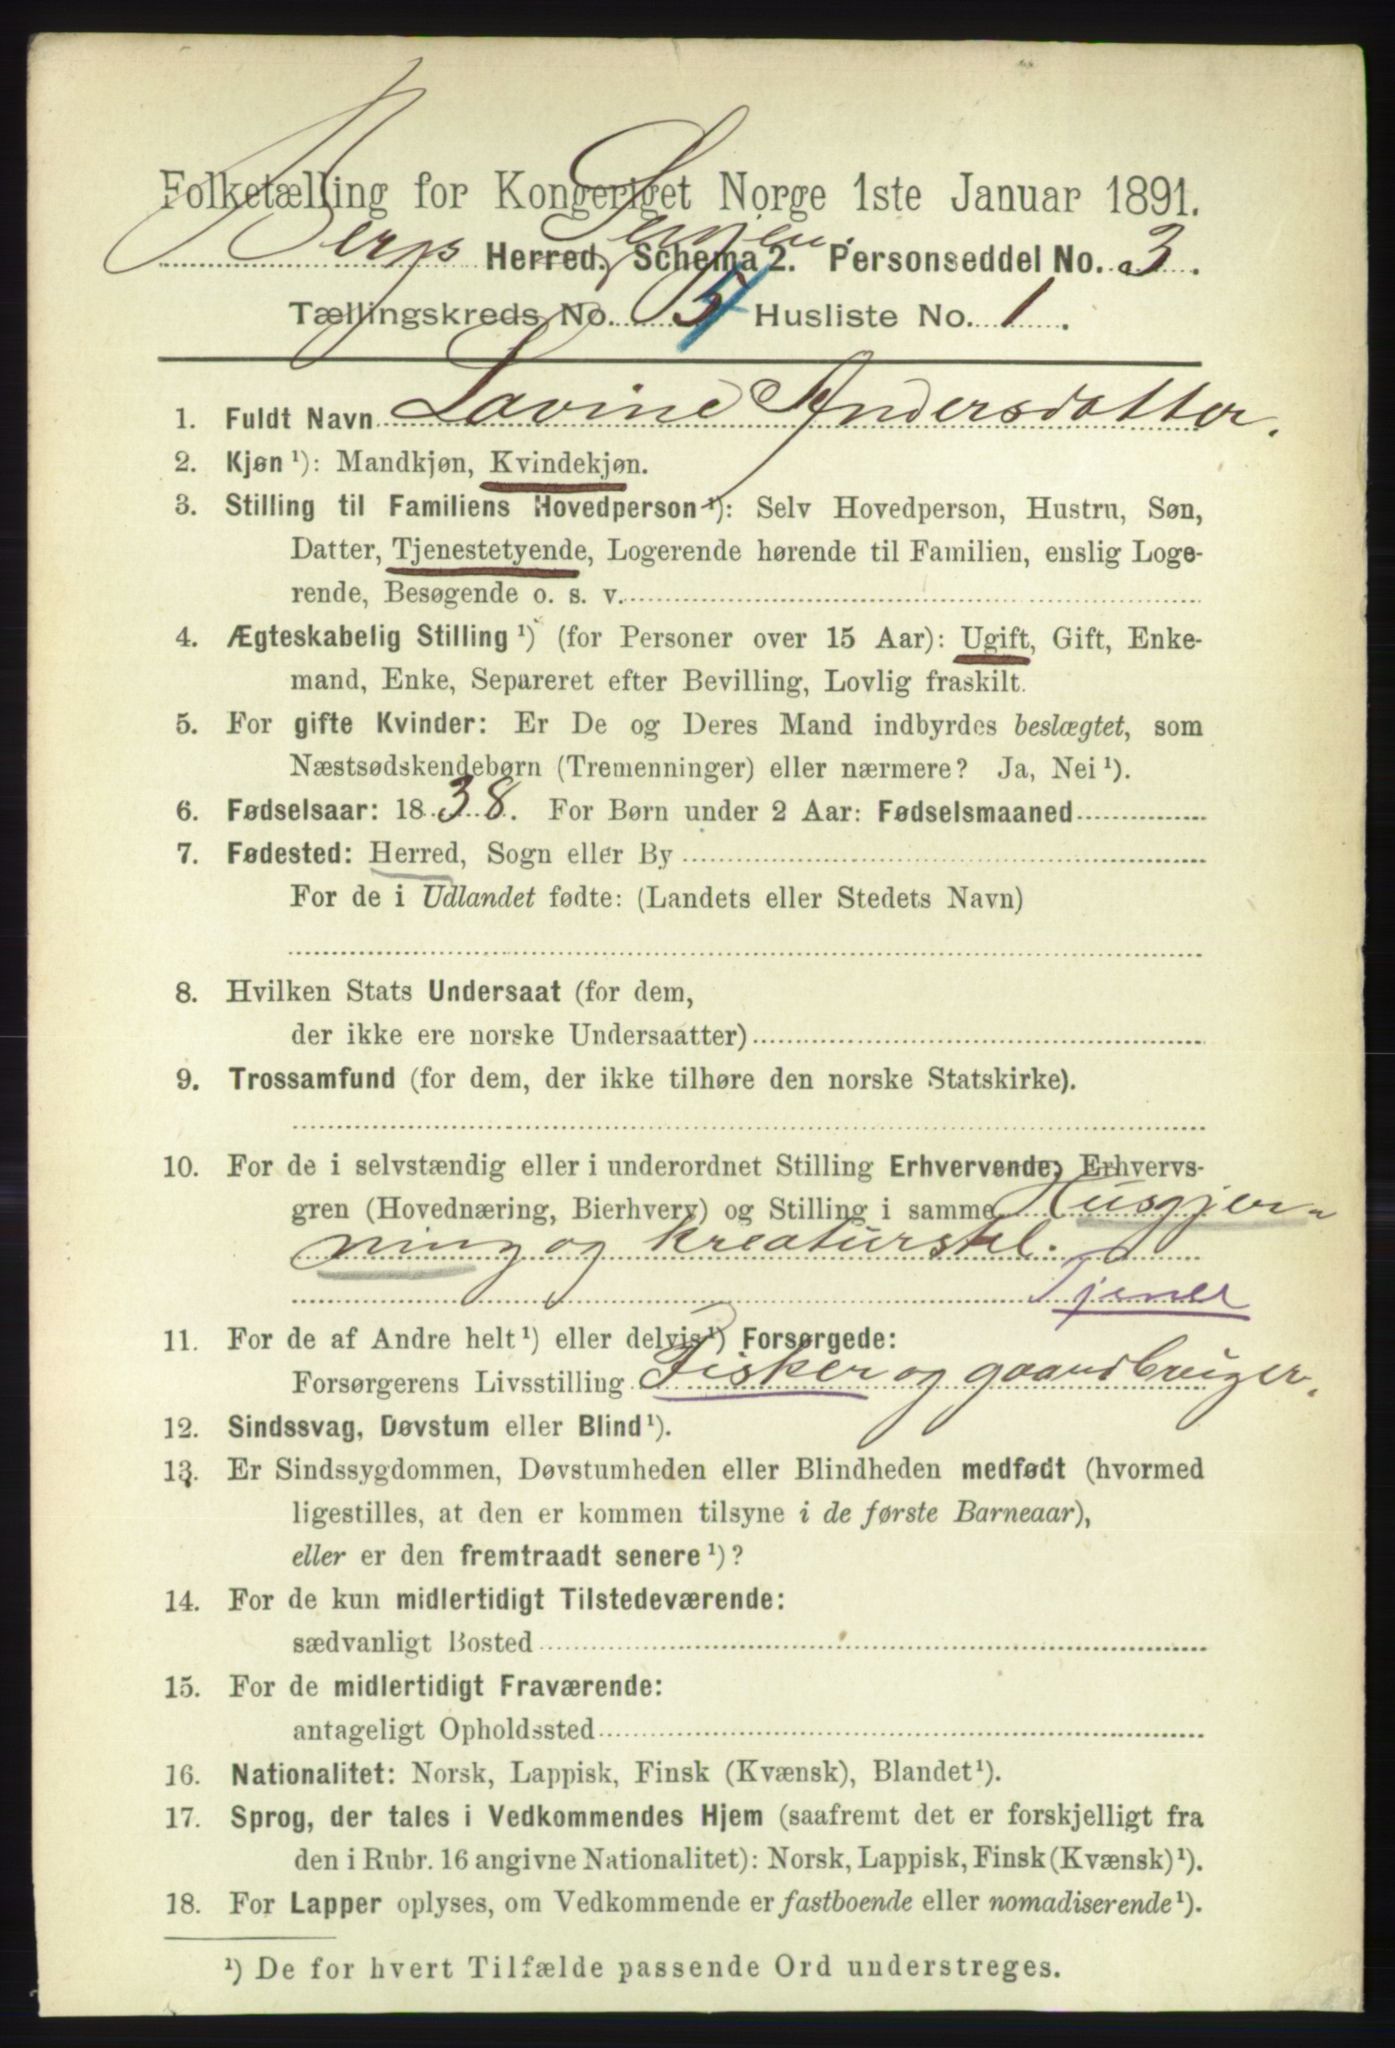 Folketælling for Kongeriget Norge 1ste Januar 1891.
Berg Senjen.
Herred. Schema 2. Personseddel No. 3.
Tællingskreds No. 4 Husliste No. 1.
1. Fuldt Navn Lovine Andersdatter.
2. Kjøn ¹): Mandkjøn, Kvindekjøn.
3. Stilling til Familiens Hovedperson ¹): Selv Hovedperson, Hustru, Søn,
Datter, Tjenestetyende, Logerende hørende til Familien, enslig Loge-
rende, Besøgende o. s. v.
4. Ægteskabelig Stilling ¹) (for Personer over 15 Aar): Ugift, Gift, Enke-
mand, Enke, Separeret efter Bevilling, Lovlig fraskilt.
5. For gifte Kvinder: Er De og Deres Mand indbyrdes beslægtet, som
Næstsødskendebørn (Tremenninger) eller nærmere? Ja, Nei ¹).
6. Fødselsaar: 1838. For Børn under 2 Aar: Fødselsmaaned
7. Fødested: Herred, Sogn eller By
For de i Udlandet fødte: (Landets eller Stedets Navn)
8. Hvilken Stats Undersaat (for dem,
der ikke ere norske Undersaatter)
9. Trossamfund (for dem, der ikke tilhøre den norske Statskirke).
10. For de i selvstændig eller i underordnet Stilling Erhvervende: Erhvervs-
gren (Hovednæring, Bierhverv) og Stilling i samme Husgjer-
ning og kreaturstel.
Tjener
11. For de af Andre helt ¹) eller delvis ¹) Forsørgede:
Forsørgerens Livsstilling Fisker og gaardbruger.
12. Sindssvag, Døvstum eller Blind ¹).
13. Er Sindssygdommen, Døvstumheden eller Blindheden medfødt (hvormed
ligestilles, at den er kommen tilsyne i de første Barneaar),
eller er den fremtraadt senere ¹)?
14. For de kun midlertidigt Tilstedeværende:
sædvanligt Bosted
15. For de midlertidigt Fraværende:
antageligt Opholdssted
16. Nationalitet: Norsk, Lappisk, Finsk (Kvænsk), Blandet ¹).
17. Sprog, der tales i Vedkommendes Hjem (saafremt det er forskjelligt fra
den i Rubr. 16 angivne Nationalitet): Norsk, Lappisk, Finsk (Kvænsk) ¹).
18. For Lapper oplyses, om Vedkommende er fastboende eller nomadiserende ¹).
¹) De for hvert Tilfælde passende Ord understreges.